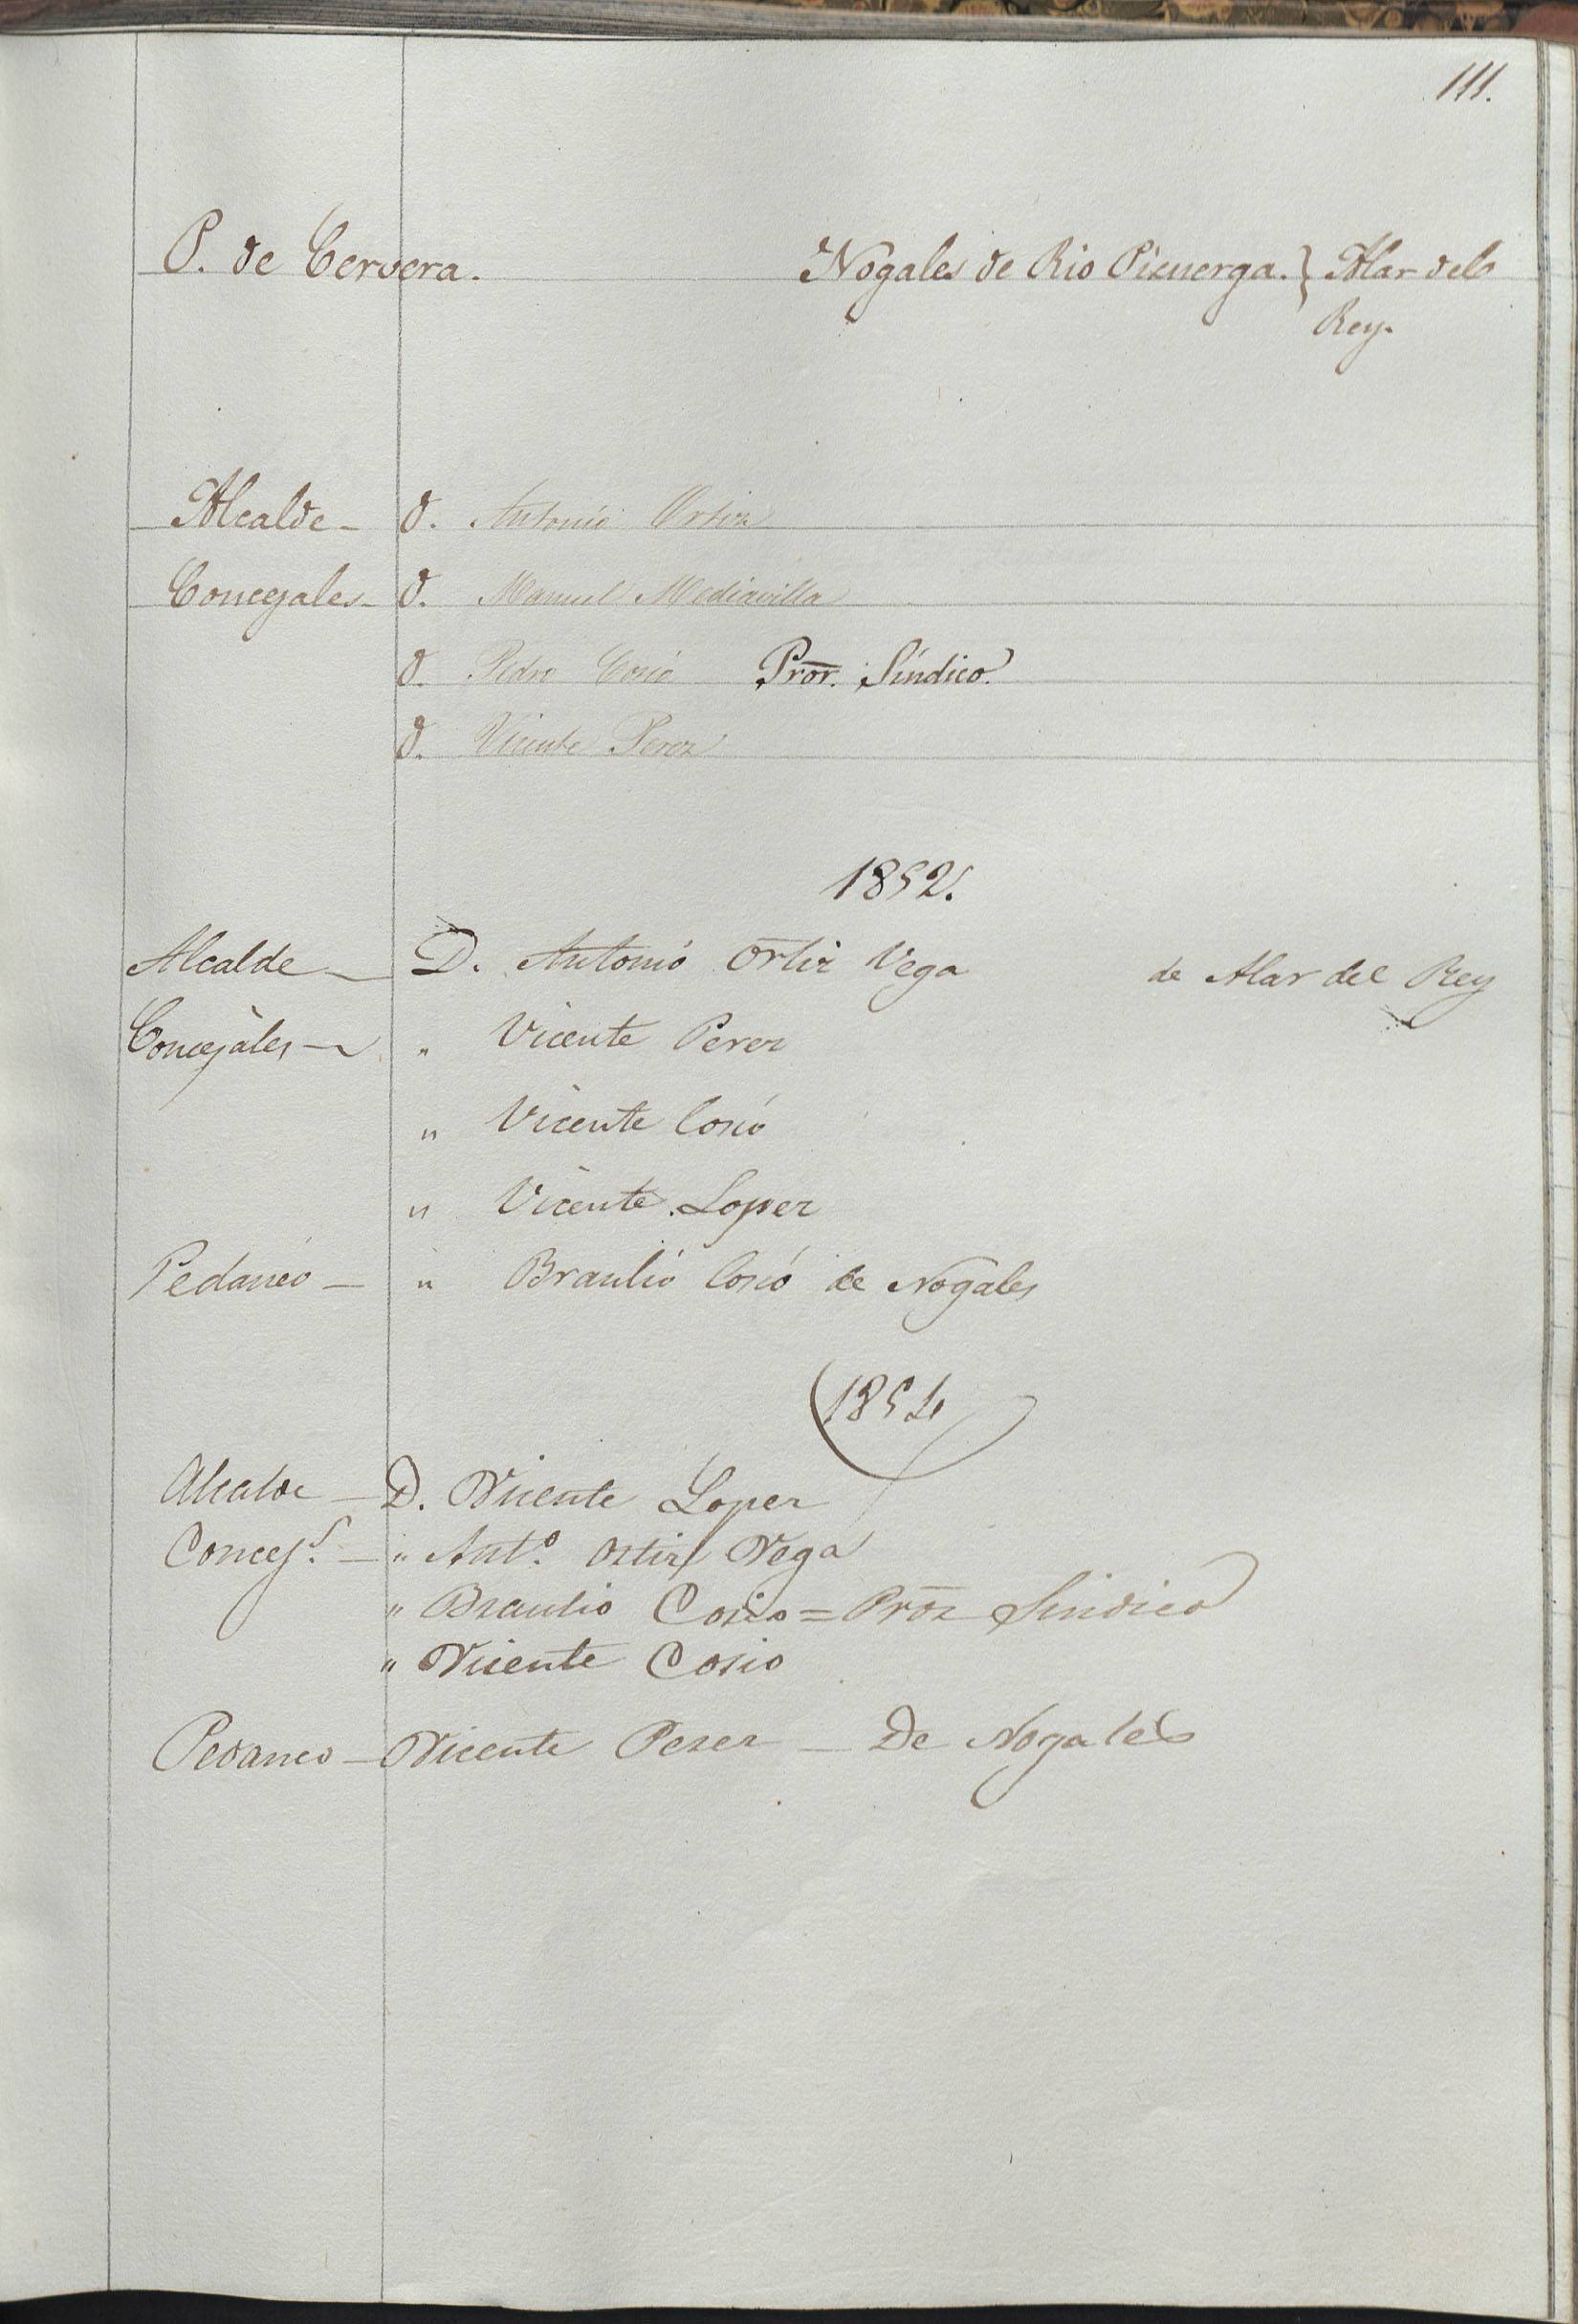 111.
P. de Cervera. Nogales de Rio Pisuerga. } Alar del
Rey.
Alcalde - D. Antonio Ortiz
Concejales - D. Manuel Mediavilla
D. Pedro Cosio Pror. Síndico.
D. Vicente Perez
1852.
Alcalde - D. Antonio Ortiz Vega de Alar del Rey
Concejales - " Vicente Perez
" Vicente Cosio
" Vicente Lopez
Pedaneo - " Braulio Cosio de Nogales
1854
Alcalde - D. Vicente Lopez
Concejs. - " Anto. Ortiz Vega
" Braulio Cosio = Pror Sindico
" Vicente Cosio
Pedaneo - Vicente Perez - De Nogales